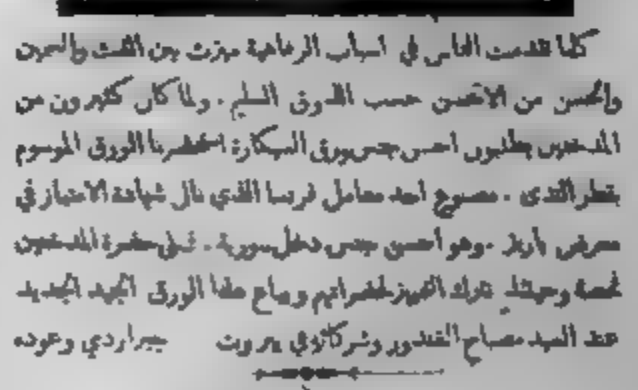 كلما تقدمت الناس في اسباب الرفاهية ميزت بين الغث والسمين
والحسن من الاحسن حسب الذوق السليم . ولما كان كثيرون من
المدخنين يطلبون احسن جنس ورق السيكارة استحضرنا الورق الموسوم
بقطر الندى . مصنوع احد معامل فرنسا الذي نال شهادة الامتياز في
معرض باريز . وهو أحسن جنس دخل سورية . فعلى حضرة المدخنين
وحينئذ نترك التمييز لحضراتهم ويباع هذا الورق الجيد الجديد
عند السيد مصباح الغندور وشركاؤه في بيروت جبراردي وعوده